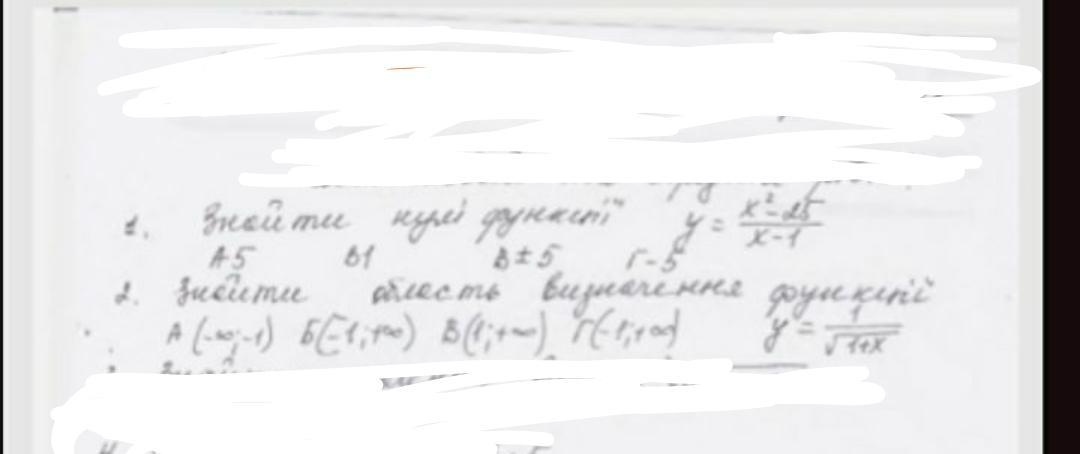 1. Знайти нулі функції y = x²-25/x-1
А 5 В 1 В ± 5 Г - 5
2. Знайти область визначення функції y = 1/√1+x
А (-∞;-1) Б[-1;+∞) В(1;+∞) Г(-1;+∞)